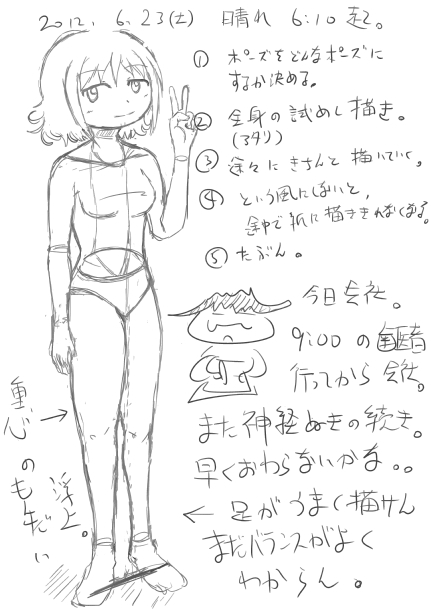 2012. 6.23(土) 晴れ 6:10 起。
① ポーズをどんなポーズに
するか決める。
② 全身の試めし描き。
(3タリ)
③ 徐々にきちんと描いていく。
④ という風にしないと、
途中で紙に描ききれなくなる。
⑤ たぶん。
今日会社。
9:00の歯医者
行ってから会社。
また神経ぬきの続き。
早くおわらないかな。。
← 足がうまく描けん
まだバランスがよく
わからん。
重心 →
のもんだい
浮上。